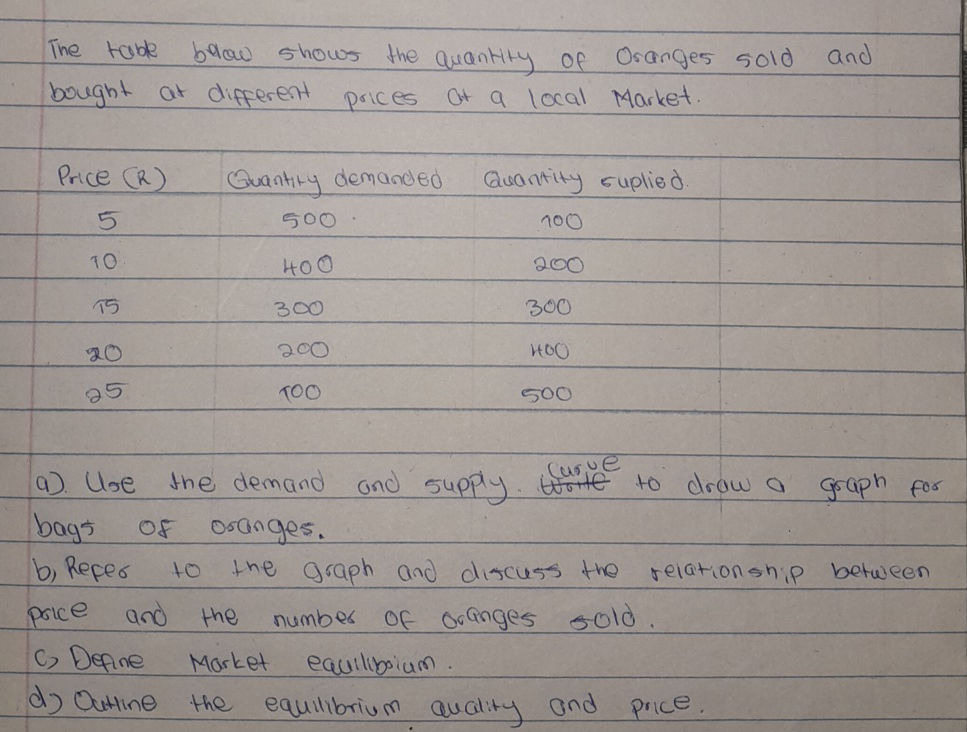 The table below shows the quantity of Oranges sold and
bought at different prices at a local Market.
Price (R) Quantity demanded Quantity suplied.
5 500 100
10 400 200
15 300 300
20 200 400
25 100 500
a). Use the demand and supply. curve to draw a graph for
bags of oranges.
b, Refer to the graph and discuss the relationship between
price and the number of oranges sold.
c) Define Market equilibrium.
d) Outline the equilibrium quality and price.